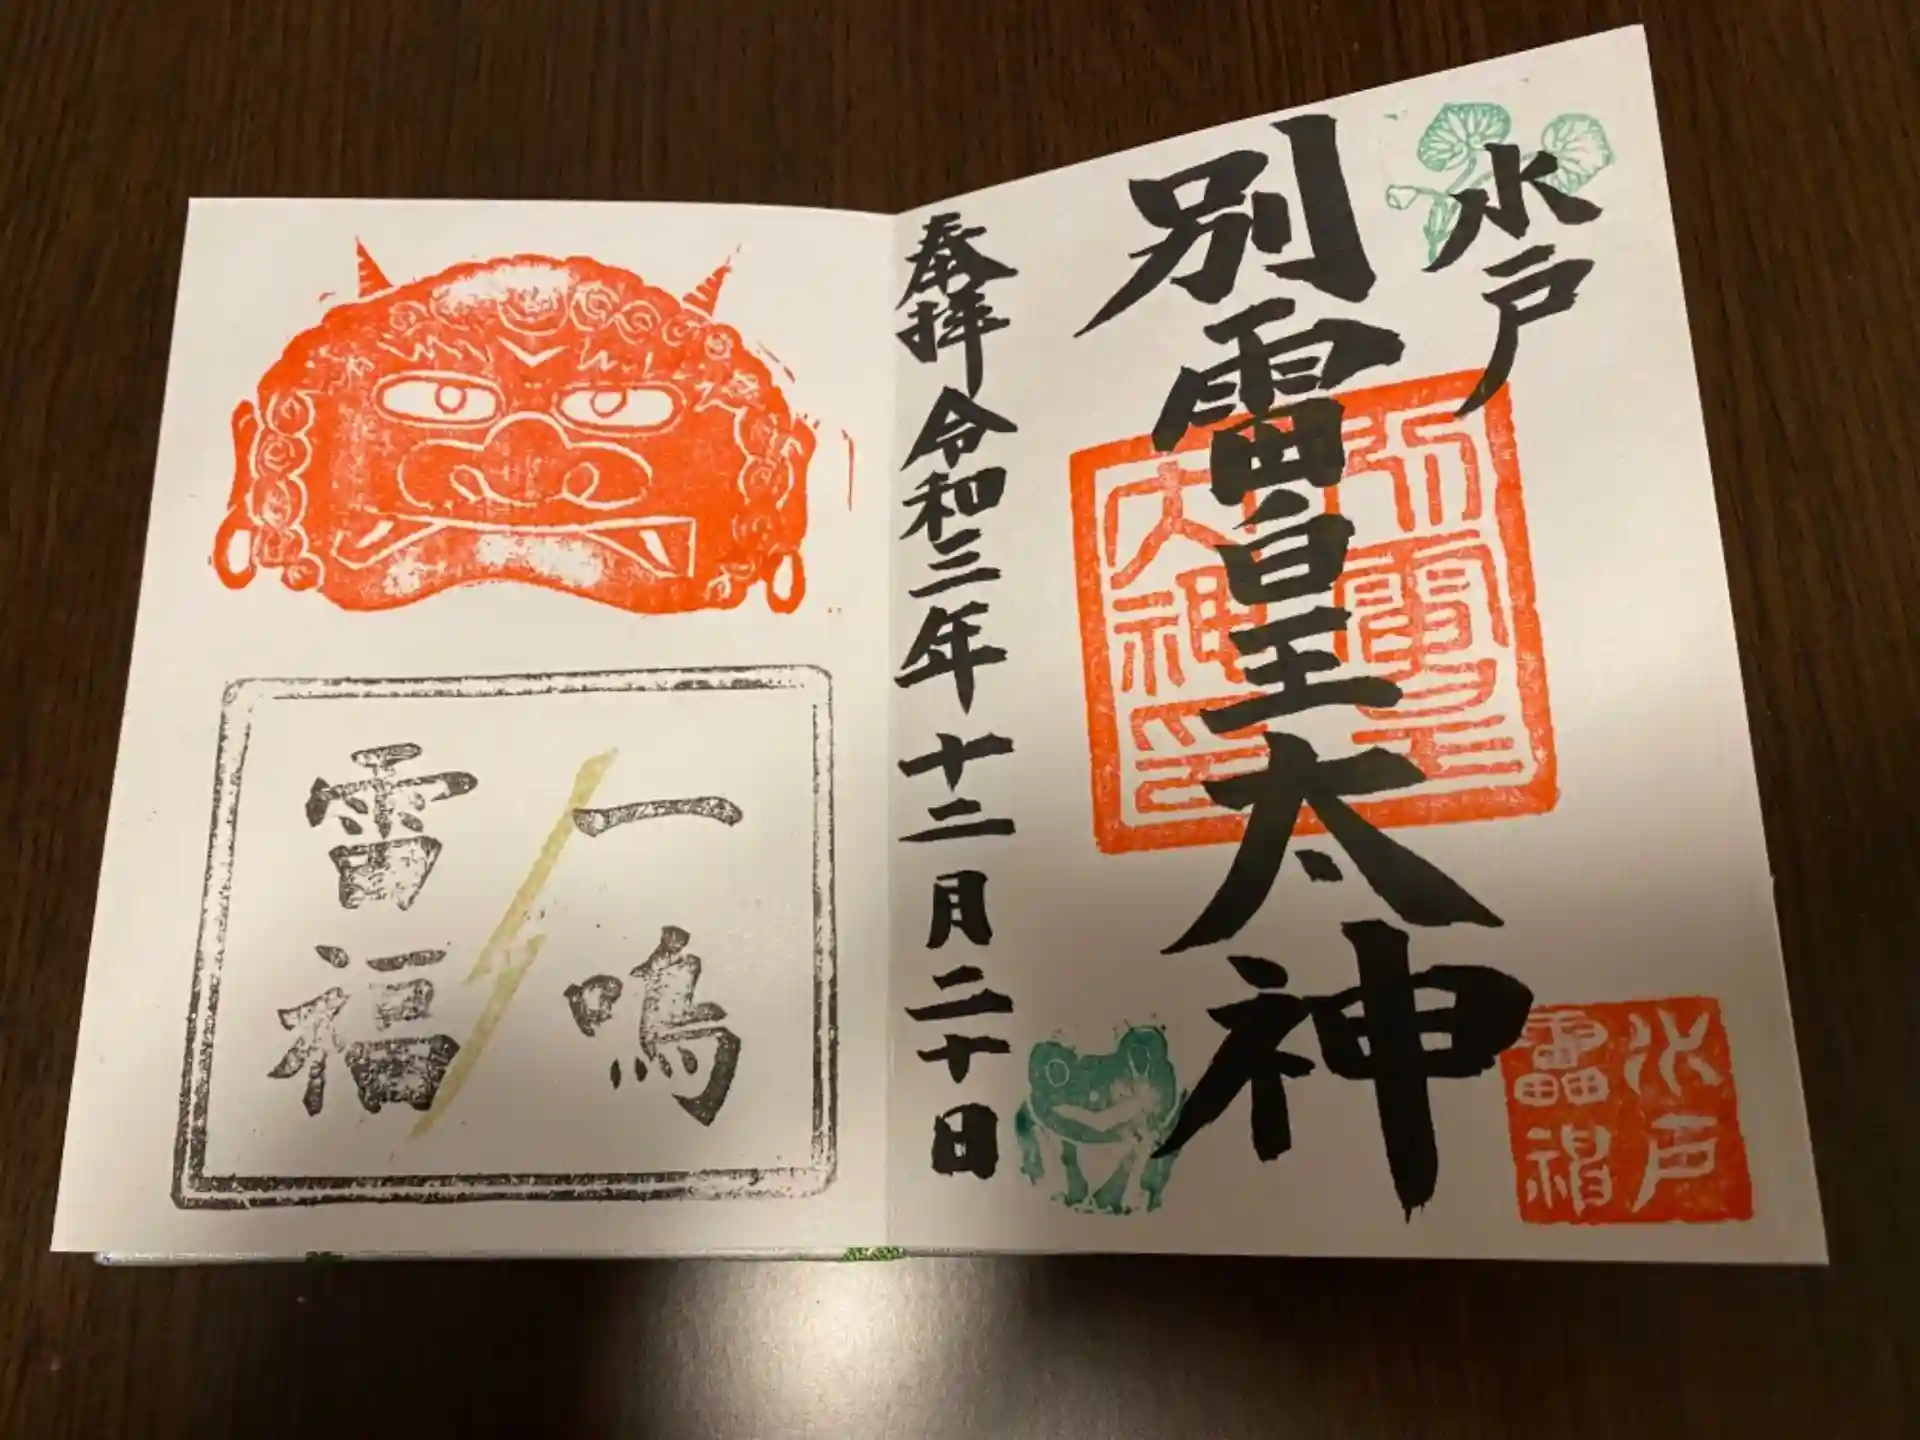 水戸
別雷皇太神
奉拝 令和三年十二月二十日
一鳴
雷福
別雷皇
太神印
水戸